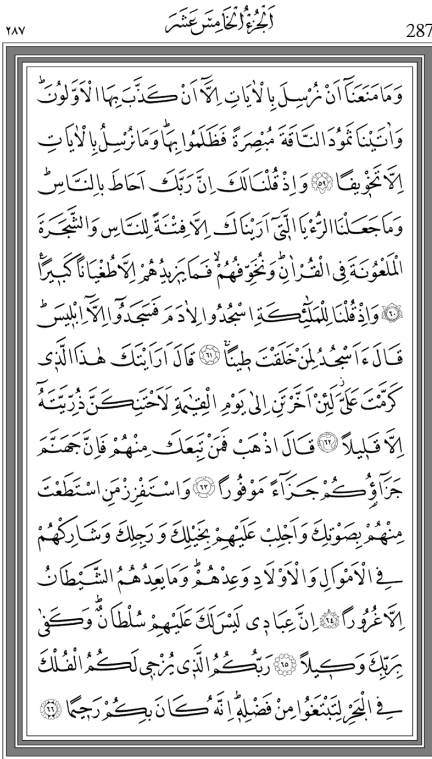 اَلْجُزْءُ الْخَامِسَ عَشَرَ
٢٨٧
287
وَمَا مَنَعَنَٓا اَنْ نُرْسِلَ بِالْاٰيَاتِ اِلَّٓا اَنْ كَذَّبَ بِهَا الْاَوَّلُونَۜ
وَاٰتَيْنَا ثَمُودَ النَّاقَةَ مُبْصِرَةً فَظَلَمُوا بِهَاۜ وَمَا نُرْسِلُ بِالْاٰيَاتِ
اِلَّا تَخْوِيفًا ﴿٥٩﴾ وَاِذْ قُلْنَا لَكَ اِنَّ رَبَّكَ اَحَاطَ بِالنَّاسِۜ
وَمَا جَعَلْنَا الرُّءْيَا الَّت۪ٓي اَرَيْنَاكَ اِلَّا فِتْنَةً لِلنَّاسِ وَالشَّجَرَةَ
الْمَلْعُونَةَ فِي الْقُرْاٰنِۜ وَنُخَوِّفُهُمْۙ فَمَا يَز۪يدُهُمْ اِلَّا طُغْيَانًا كَب۪يرًا۟
﴿٦٠﴾ وَاِذْ قُلْنَا لِلْمَلٰٓئِكَةِ اسْجُدُوا لِاٰدَمَ فَسَجَدُٓوا اِلَّٓا اِبْل۪يسَۜ
قَالَ ءَاَسْجُدُ لِمَنْ خَلَقْتَ ط۪ينًاۚ ﴿٦١﴾ قَالَ اَرَاَيْتَكَ هٰذَا الَّذ۪ي
كَرَّمْتَ عَلَيَّۘ لَئِنْ اَخَّرْتَنِ اِلٰى يَوْمِ الْقِيٰمَةِ لَاَحْتَنِكَنَّ ذُرِّيَّتَهُٓ
اِلَّا قَل۪يلًا ﴿٦٢﴾ قَالَ اذْهَبْ فَمَنْ تَبِعَكَ مِنْهُمْ فَاِنَّ جَهَنَّمَ
جَزَٓاؤُ۬كُمْ جَزَٓاءً مَوْفُورًا ﴿٦٣﴾ وَاسْتَفْزِزْ مَنِ اسْتَطَعْتَ
مِنْهُمْ بِصَوْتِكَ وَاَجْلِبْ عَلَيْهِمْ بِخَيْلِكَ وَرَجِلِكَ وَشَارِكْهُمْ
فِي الْاَمْوَالِ وَالْاَوْلَادِ وَعِدْهُمْۜ وَمَا يَعِدُهُمُ الشَّيْطَانُ
اِلَّا غُرُورًا ﴿٦٤﴾ اِنَّ عِبَاد۪ي لَيْسَ لَكَ عَلَيْهِمْ سُلْطَانٌۜ وَكَفٰى
بِرَبِّكَ وَك۪يلًا ﴿٦٥﴾ رَبُّكُمُ الَّذ۪ي يُزْج۪ي لَكُمُ الْفُلْكَ
فِي الْبَحْرِ لِتَبْتَغُوا مِنْ فَضْلِه۪ۜ اِنَّهُ كَانَ بِكُمْ رَح۪يمًا ﴿٦٦﴾